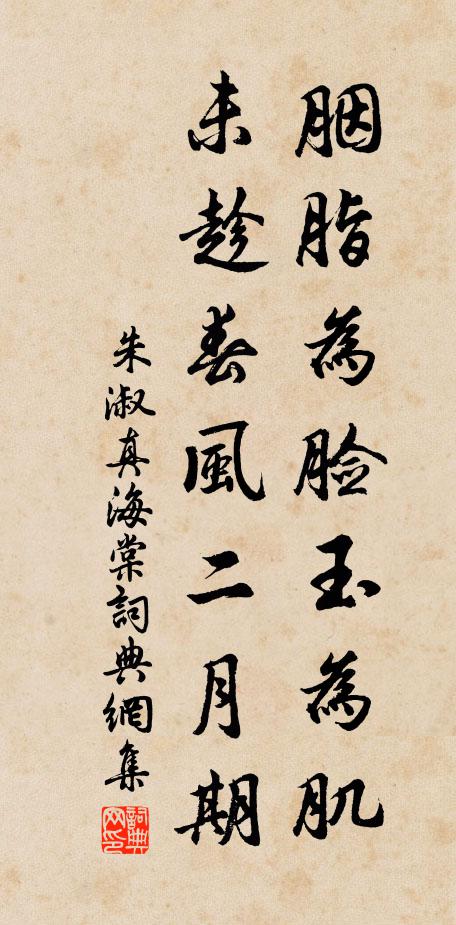 胭脂為脸玉為肌
未趁春風二月期
朱淑真海棠詞典網集
詞典网印